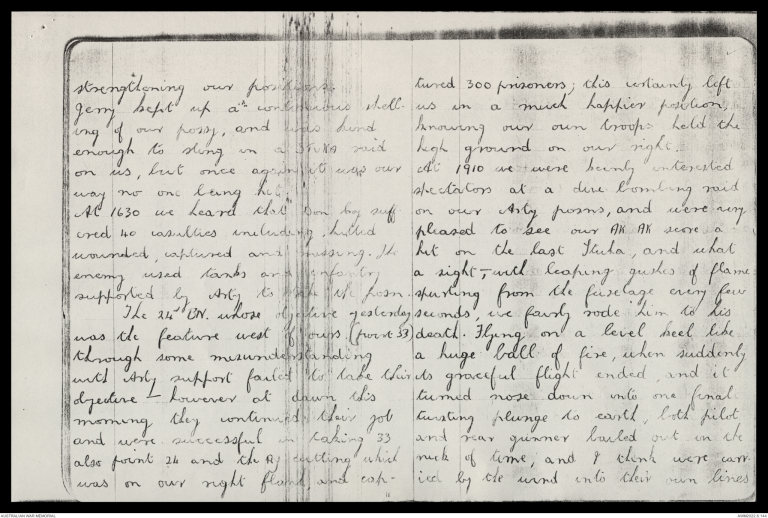 strengthening our positions.
Jerry kept up a continuous shell-
ing of our possy, and was kind
enough to sling in a Stuka raid
on us, but once again it was our
way no one being hit.
At 1630 we heard that Don Coy suff
ered 40 casulties including, killed
wounded, captured and missing. The
enemy used tanks and infantry
supported by Arty to take the posn.
The 24th BN. whose objective yesterday
was the feature west of ours (point 33)
through some misunderstanding
with Arty support failed to take their
objective - however at dawn this
morning they continued their job
and were successful in taking 33
also point 24 and the Ry cutting which
was on our right flank and cap-
tured 300 prisoners; this certainly left
us in a much happier position,
knowing our own troops held the
high ground on our right.
At 1910 we were keenly interested
spectators at a dive bombing raid
on our Arty posns, and were very
pleased to see our AK AK score a
hit on the last Stuka, and what
a sight, - with leaping gushes of flame
spurting from the fuselage every few
seconds, we fairly rode him to his
death. Flying on a level keel like
a huge ball of fire, when suddenly
its graceful flight ended and it
turned nose down into one final
twisting plunge to earth, both pilot
and rear gunner bailed out in the
nick of time, and I think were carr-
ied by the wind into their own lines
AUSTRALIAN WAR MEMORIAL